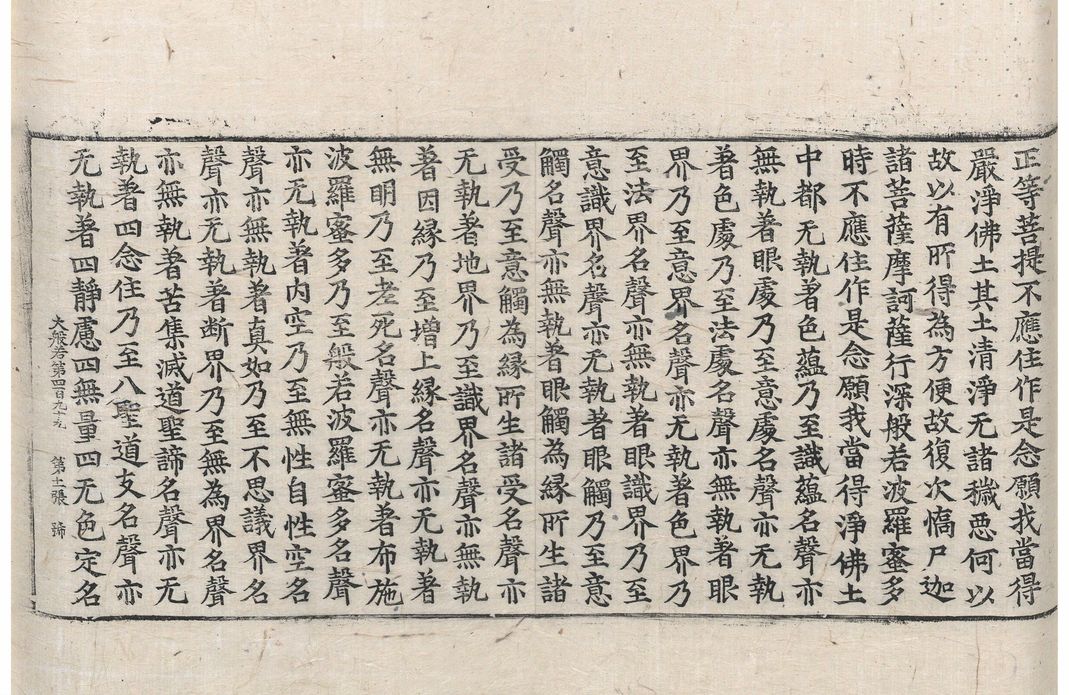 正等菩提不應住作是念願我當得
嚴淨佛土其土清淨无諸穢惡何以
故以有所得為方便故復次憍尸迦
諸菩薩摩訶薩行深般若波羅蜜多
時不應住作是念願我當得淨佛土
中都无執著色蘊乃至識蘊名聲亦
無執著眼處乃至意處名聲亦无執
著色處乃至法處名聲亦無執著眼
界乃至意界名聲亦无執著色界乃
至法界名聲亦無執著眼識界乃至
意識界名聲亦无執著眼觸乃至意
觸名聲亦無執著眼觸為緣所生諸
受乃至意觸為緣所生諸受名聲亦
无執著地界乃至識界名聲亦無執
著因縁乃至增上縁名聲亦无執著
無明乃至老死名聲亦无執著布施
波羅蜜多乃至般若波羅蜜多名聲
亦无執著內空乃至無性自性空名
聲亦無執著真如乃至不思議界名
聲亦无執著断界乃至無為界名聲
亦無執著苦集滅道聖諦名聲亦无
執著四念住乃至八聖道支名聲亦
无執著四靜慮四無量四无色定名
大般若第四百九十九 第十一張 號